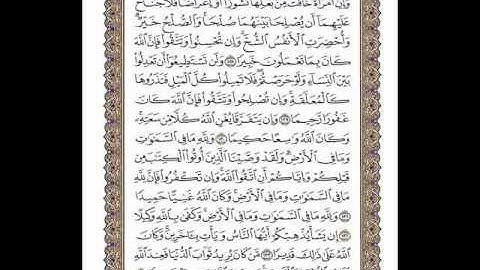 وَإِنِ ٱمْرَأَةٌ خَافَتْ مِنۢ بَعْلِهَا نُشُوزًا أَوْ إِعْرَاضًا فَلَا جُنَاحَ
عَلَيْهِمَآ أَن يُصْلِحَا بَيْنَهُمَا صُلْحًا وَٱلصُّلْحُ خَيْرٌ
وَأُحْضِرَتِ ٱلْأَنفُسُ ٱلشُّحَّ وَإِن تُحْسِنُوا۟ وَتَتَّقُوا۟ فَإِنَّ ٱللَّهَ
كَانَ بِمَا تَعْمَلُونَ خَبِيرًا ١٢٨ وَلَن تَسْتَطِيعُوٓا۟ أَن تَعْدِلُوا۟
بَيْنَ ٱلنِّسَآءِ وَلَوْ حَرَصْتُمْ فَلَا تَمِيلُوا۟ كُلَّ ٱلْمَيْلِ فَتَذَرُوهَا
كَٱلْمُعَلَّقَةِ وَإِن تُصْلِحُوا۟ وَتَتَّقُوا۟ فَإِنَّ ٱللَّهَ كَانَ
غَفُورًا رَّحِيمًا ١٢٩ وَإِن يَتَفَرَّقَا يُغْنِ ٱللَّهُ كُلًّا مِّن سَعَتِهِۦ
وَكَانَ ٱللَّهُ وَٰسِعًا حَكِيمًا ١٣٠ وَلِلَّهِ مَا فِى ٱلسَّمَٰوَٰتِ
وَمَا فِى ٱلْأَرْضِ وَلَقَدْ وَصَّيْنَا ٱلَّذِينَ أُوتُوا۟ ٱلْكِتَٰبَ مِن
قَبْلِكُمْ وَإِيَّاكُمْ أَنِ ٱتَّقُوا۟ ٱللَّهَ وَإِن تَكْفُرُوا۟ فَإِنَّ لِلَّهِ
مَا فِى ٱلسَّمَٰوَٰتِ وَمَا فِى ٱلْأَرْضِ وَكَانَ ٱللَّهُ غَنِيًّا حَمِيدًا
١٣١ وَلِلَّهِ مَا فِى ٱلسَّمَٰوَٰتِ وَمَا فِى ٱلْأَرْضِ وَكَفَىٰ بِٱللَّهِ وَكِيلًا
١٣٢ إِن يَشَأْ يُذْهِبْكُمْ أَيُّهَا ٱلنَّاسُ وَيَأْتِ بِـَٔاخَرِينَ وَكَانَ
ٱللَّهُ عَلَىٰ ذَٰلِكَ قَدِيرًا ١٣٣ مَّن كَانَ يُرِيدُ ثَوَابَ ٱلدُّنْيَا فَعِندَ ٱللَّهِ